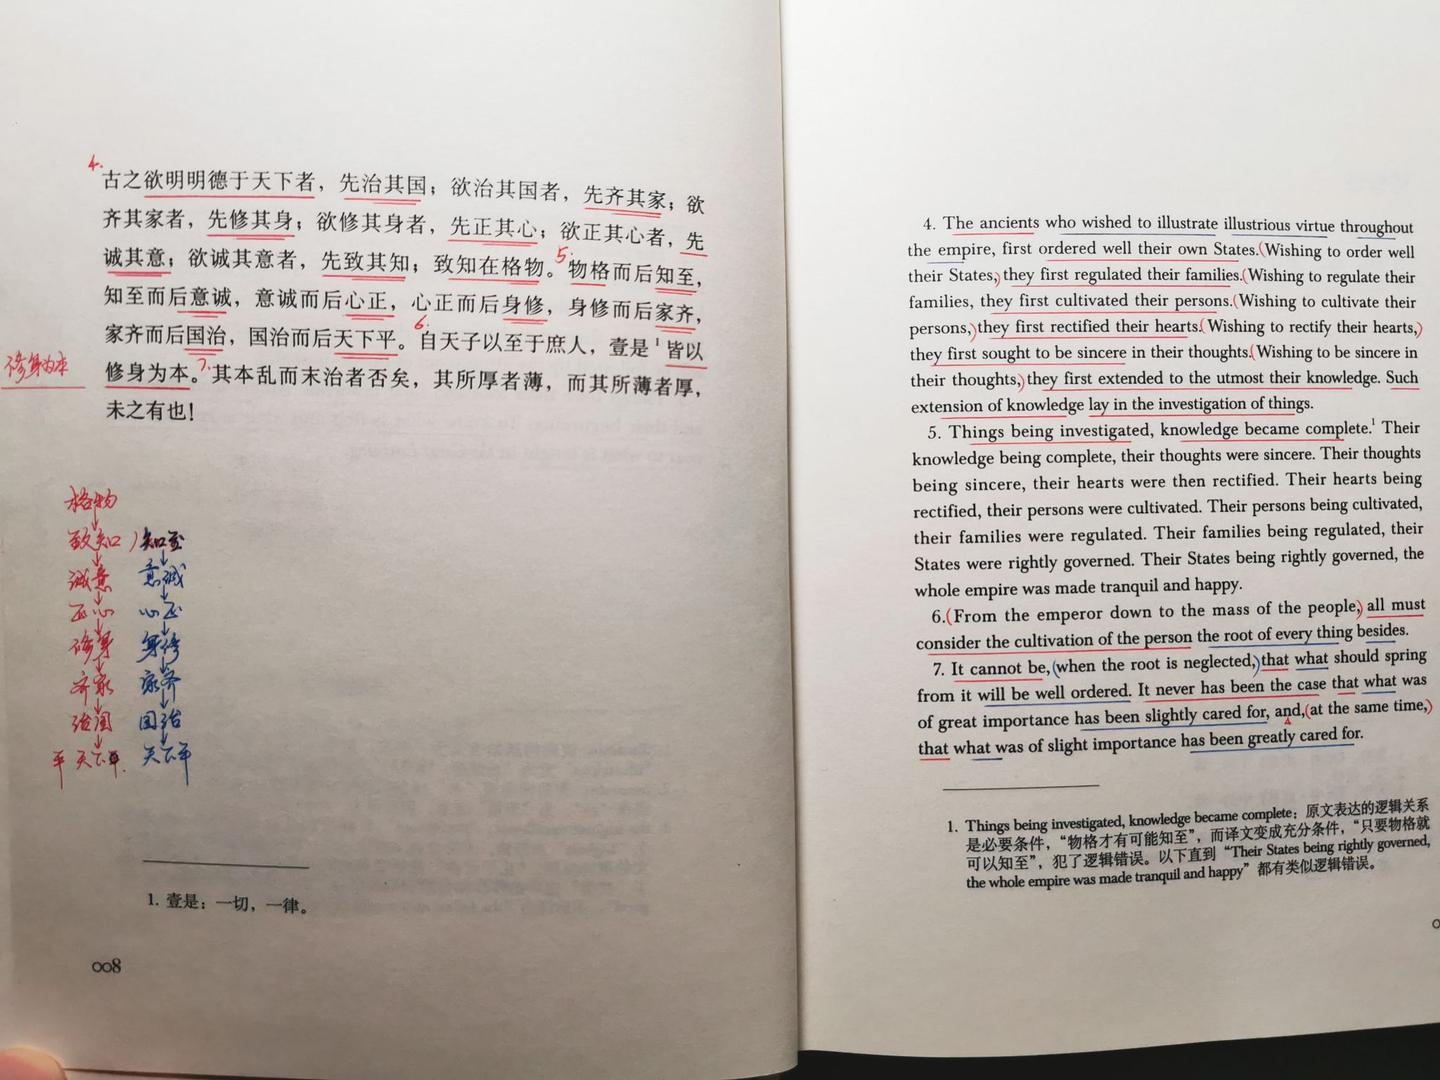 4.
古之欲明明德于天下者，先治其国；欲治其国者，先齐其家；欲
齐其家者，先修其身；欲修其身者，先正其心；欲正其心者，先
诚其意；欲诚其意者，先致其知；致知在格物。5.物格而后知至，
知至而后意诚，意诚而后心正，心正而后身修，身修而后家齐，
家齐而后国治，国治而后天下平。6.自天子以至于庶人，壹是¹皆以
修身为本
修身为本。7.其本乱而末治者否矣，其所厚者薄，而其所薄者厚，
未之有也！
格物
致知）知至
诚意 意诚
正心 心正
修身 身修
齐家 家齐
治国 国治
平天下平. 天下平
1. 壹是：一切，一律。
008
4. The ancients who wished to illustrate illustrious virtue throughout
the empire, first ordered well their own States.(Wishing to order well
their States,)they first regulated their families.(Wishing to regulate their
families, they first cultivated their persons.(Wishing to cultivate their
persons,)they first rectified their hearts.(Wishing to rectify their hearts,)
they first sought to be sincere in their thoughts.(Wishing to be sincere in
their thoughts,)they first extended to the utmost their knowledge. Such
extension of knowledge lay in the investigation of things.
5. Things being investigated, knowledge became complete.¹ Their
knowledge being complete, their thoughts were sincere. Their thoughts
being sincere, their hearts were then rectified. Their hearts being
rectified, their persons were cultivated. Their persons being cultivated,
their families were regulated. Their families being regulated, their
States were rightly governed. Their States being rightly governed, the
whole empire was made tranquil and happy.
6.(From the emperor down to the mass of the people,)all must
consider the cultivation of the person the root of every thing besides.
7. It cannot be,(when the root is neglected,)that what should spring
from it will be well ordered. It never has been the case that what was
of great importance has been slightly cared for, and,(at the same time,)
that what was of slight importance has been greatly cared for.
1. Things being investigated, knowledge became complete：原文表达的逻辑关系
是必要条件，“物格才有可能知至”，而译文变成充分条件，“只要物格就
可以知至”，犯了逻辑错误。以下直到“Their States being rightly governed,
the whole empire was made tranquil and happy”都有类似逻辑错误。